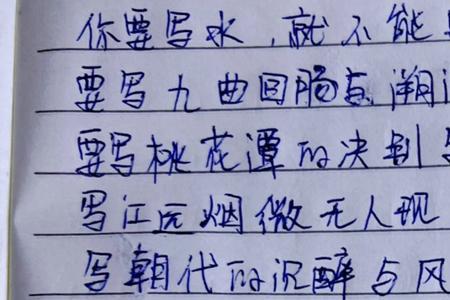 你要写水,就不能
要写九曲回肠与溯
要写桃花潭的决别
写江远烟微无人现
写朝代的沉醉与风